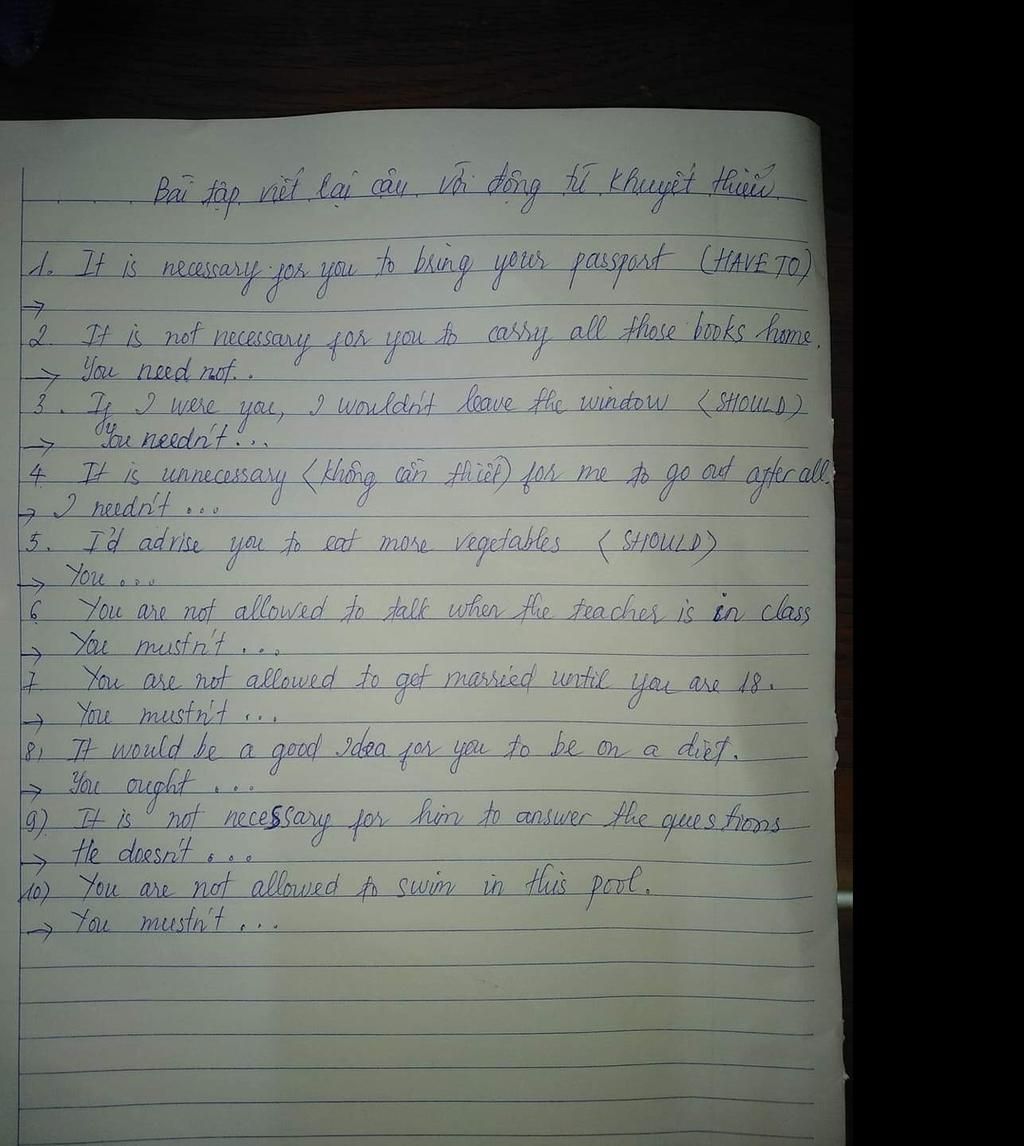 Bài tập viết lại câu với động từ khuyết thiếu
1. It is necessary for you to bring your passport (HAVE TO)
→
2. It is not necessary for you to carry all those books home.
→ You need not..
3. If I were you, I wouldn't leave the window (SHOULD)
→ You needn't...
4. It is unnecessary (không cần thiết) for me to go out after all.
→ I needn't ...
5. I'd advise you to eat more vegetables (SHOULD)
→ You...
6. You are not allowed to talk when the teacher is in class
→ You mustn't ...
7. You are not allowed to get married until you are 18.
→ You mustn't ...
8) It would be a good Idea for you to be on a diet.
→ You ought ...
9) It is not necessary for him to answer the questions
→ He doesn't ...
10) You are not allowed to swim in this pool.
→ You mustn't ...